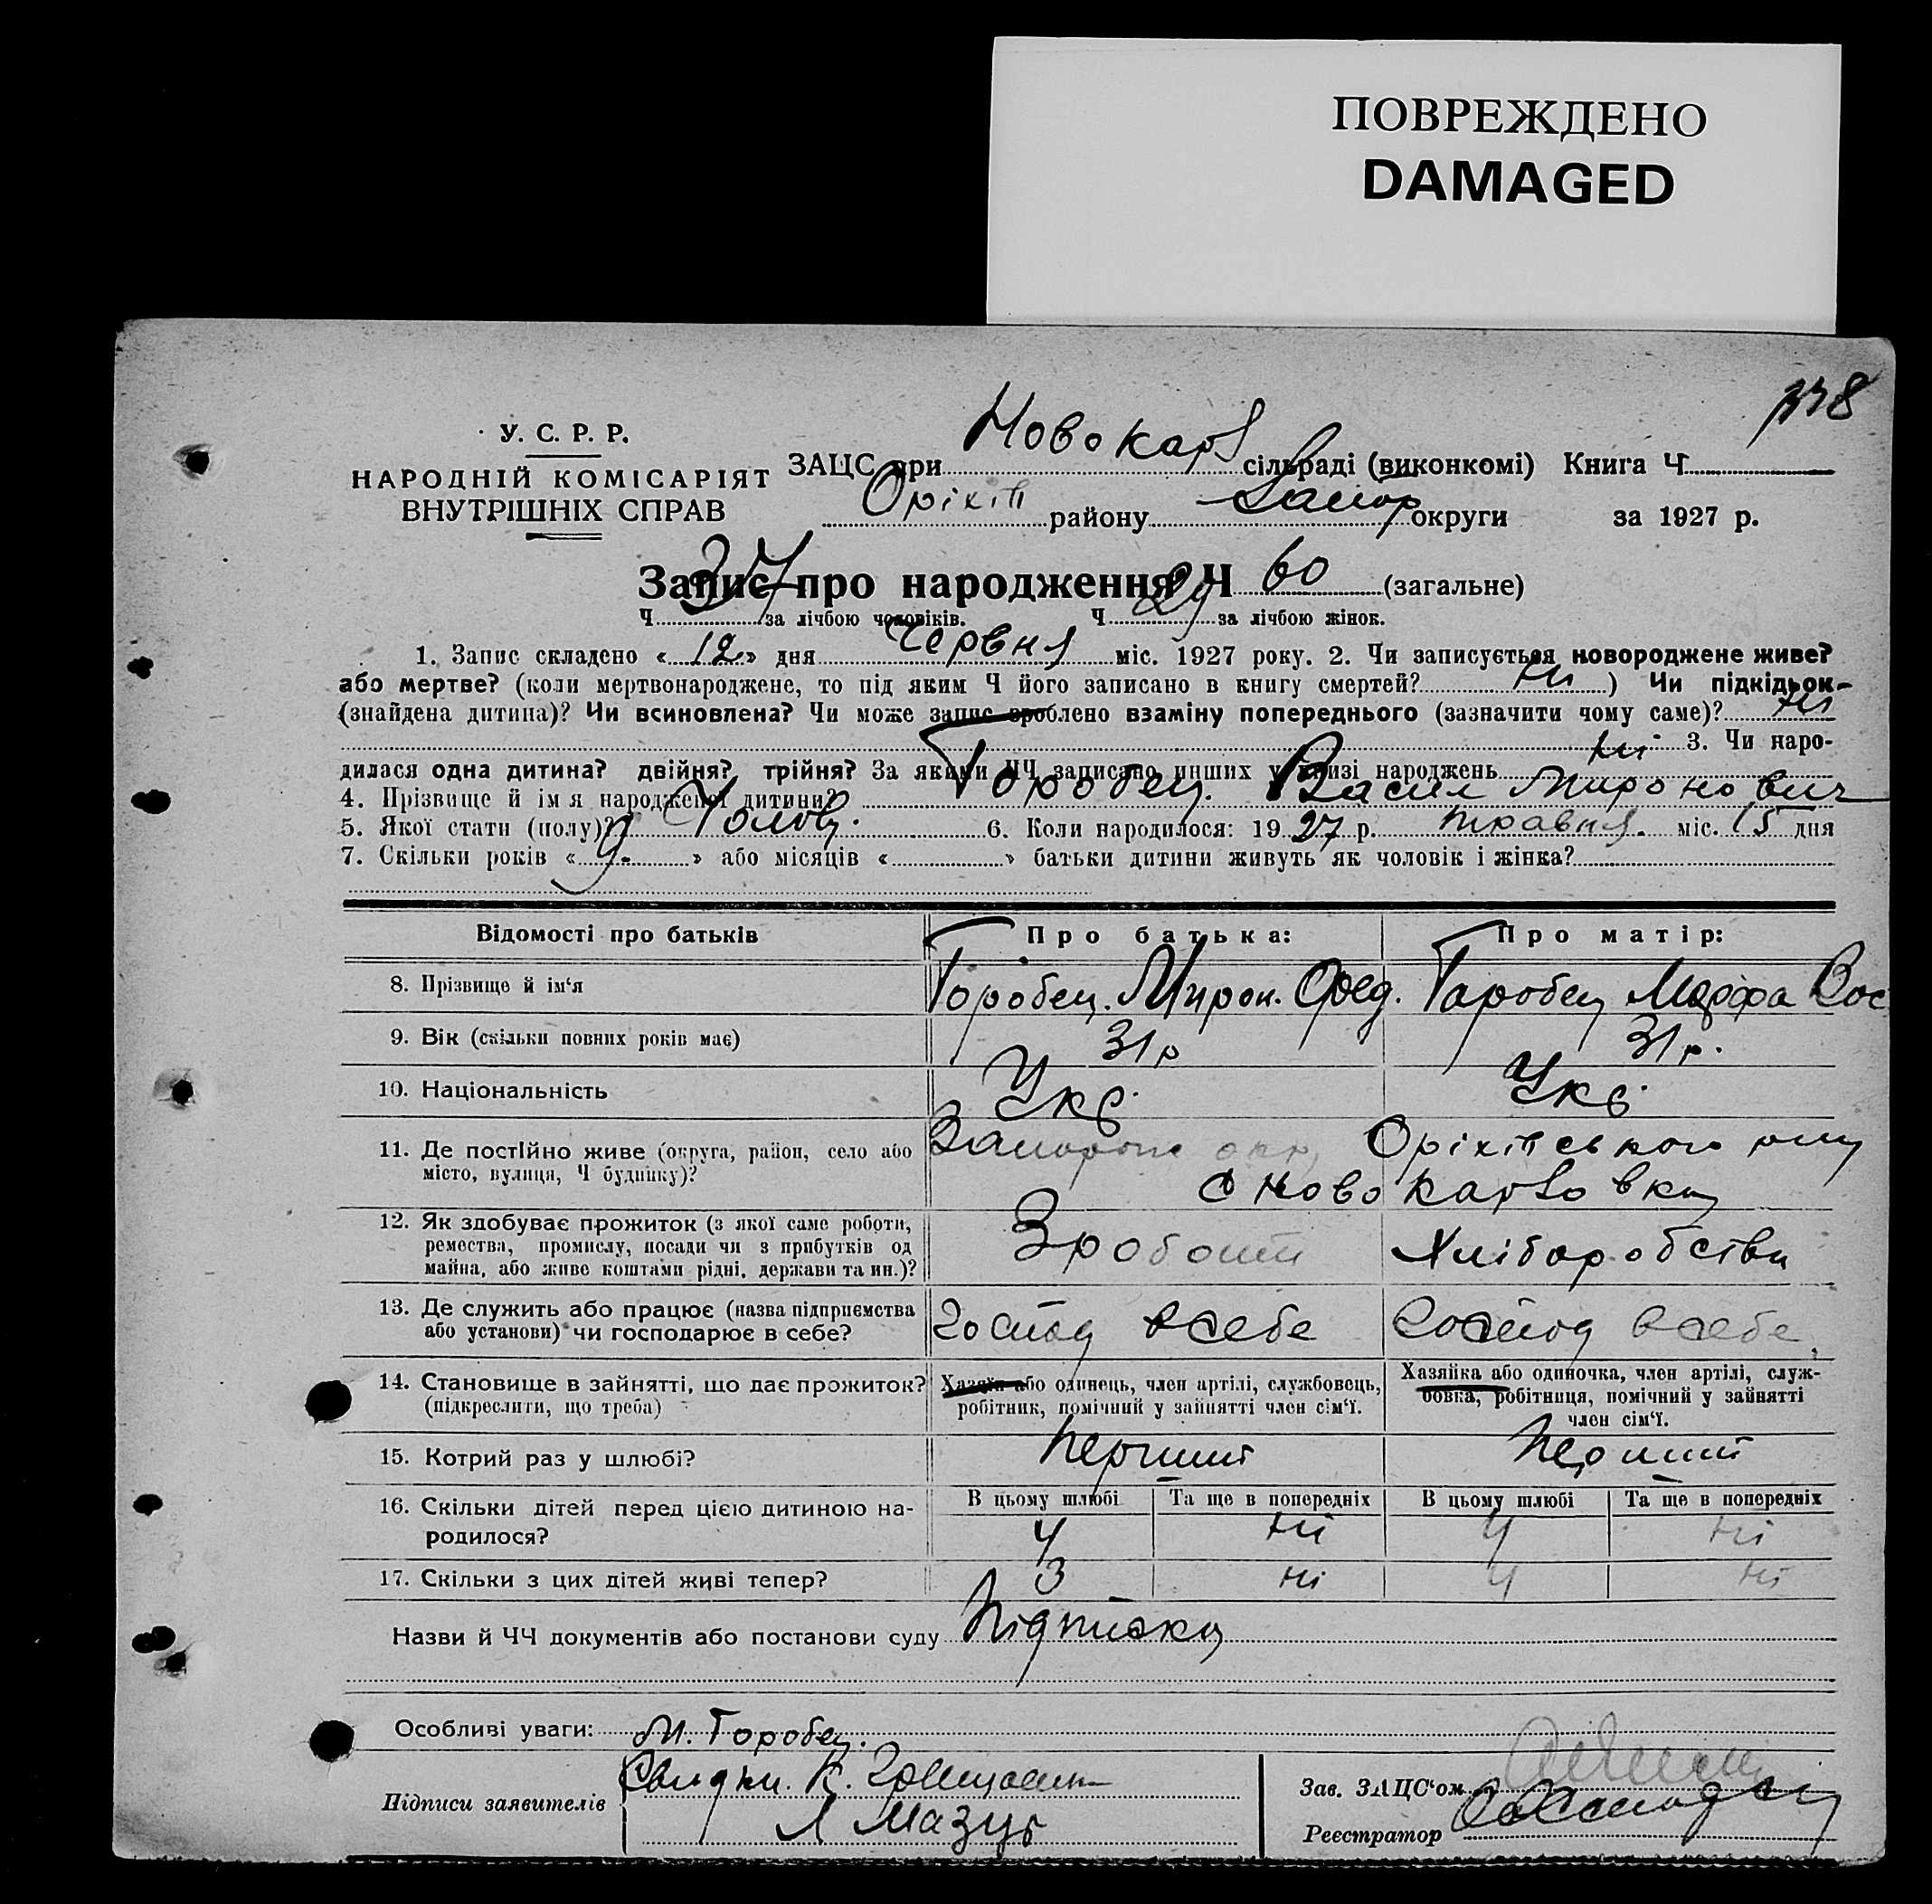 ПОВРЕЖДЕНО
DAMAGED
У. С. Р. Р.
НАРОДНІЙ КОМІСАРІЯТ
ВНУТРІШНІХ СПРАВ
ЗАЦС при Новокарл сільраді (виконкомі) Книга Ч
Оріхів району Запор округи за 1927 р.
Запис про народження Ч 60 (загальне)
Ч 37 за лічбою чоловіків. Ч 29 за лічбою жінок.
1. Запис складено «12» дня Червня міс. 1927 року. 2. Чи записується новороджене живе?
або мертве? (коли мертвонароджене, то під яким Ч його записано в книгу смертей? ні) Чи підкідьок
(знайдена дитина)? Чи всиновлена? Чи може запис зроблено взаміну попереднього (зазначити чому саме)? ні
ні 3. Чи наро-
дилася одна дитина? двійня? трійня? За якими ЧЧ записано инших у книзі народжень
4. Прізвище й ім'я народженої дитини? Горобец. Васил Миронович
5. Якої стати (полу)? Чолов. 6. Коли народилося: 1927 р. травня. міс. 15 дня
7. Скільки років « » або місяців « » батьки дитини живуть як чоловік і жінка?
Відомості про батьків Про батька: Про матір:
8. Прізвище й ім'я Горобец. Мирон. Фед. Горобец Марфа Вас
9. Вік (скільки повних років має) 31 р 31 р.
10. Національність Укр. Укр.
11. Де постійно живе (округа, район, село або Запорож окр, Оріхівського рну
місто, вулиця, Ч будинку)? с Новокарловки
12. Як здобуває прожиток (з якої саме роботи, Зроботи Хліборобства
ремества, промислу, посади чи з прибутків од
майна, або живе коштами рідні, держави та ин.)?
13. Де служить або працює (назва підприємства Господ всебе Господ всебе
або установи) чи господарює в себе?
14. Становище в зайнятті, що дає прожиток? Хазяїн або одинець, член артілі, службовець, Хазяйка або одиночка, член артілі, служ-
(підкреслити, що треба) робітник, помічний у зайнятті член сім'ї. бовка, робітниця, помічний у зайнятті
член сім'ї.
15. Котрий раз у шлюбі? Перший Перший
16. Скільки дітей перед цією дитиною на- В цьому шлюбі Та ще в попередніх В цьому шлюбі Та ще в попередніх
родилося? 4 ні 4 ні
17. Скільки з цих дітей живі тепер? 3 ні 4 ні
Назви й ЧЧ документів або постанови суду Підписка
Особливі уваги: М. Горобец.
Підписи заявителів
Л Мазур
Зав. ЗАЦС'ом
Реєстратор